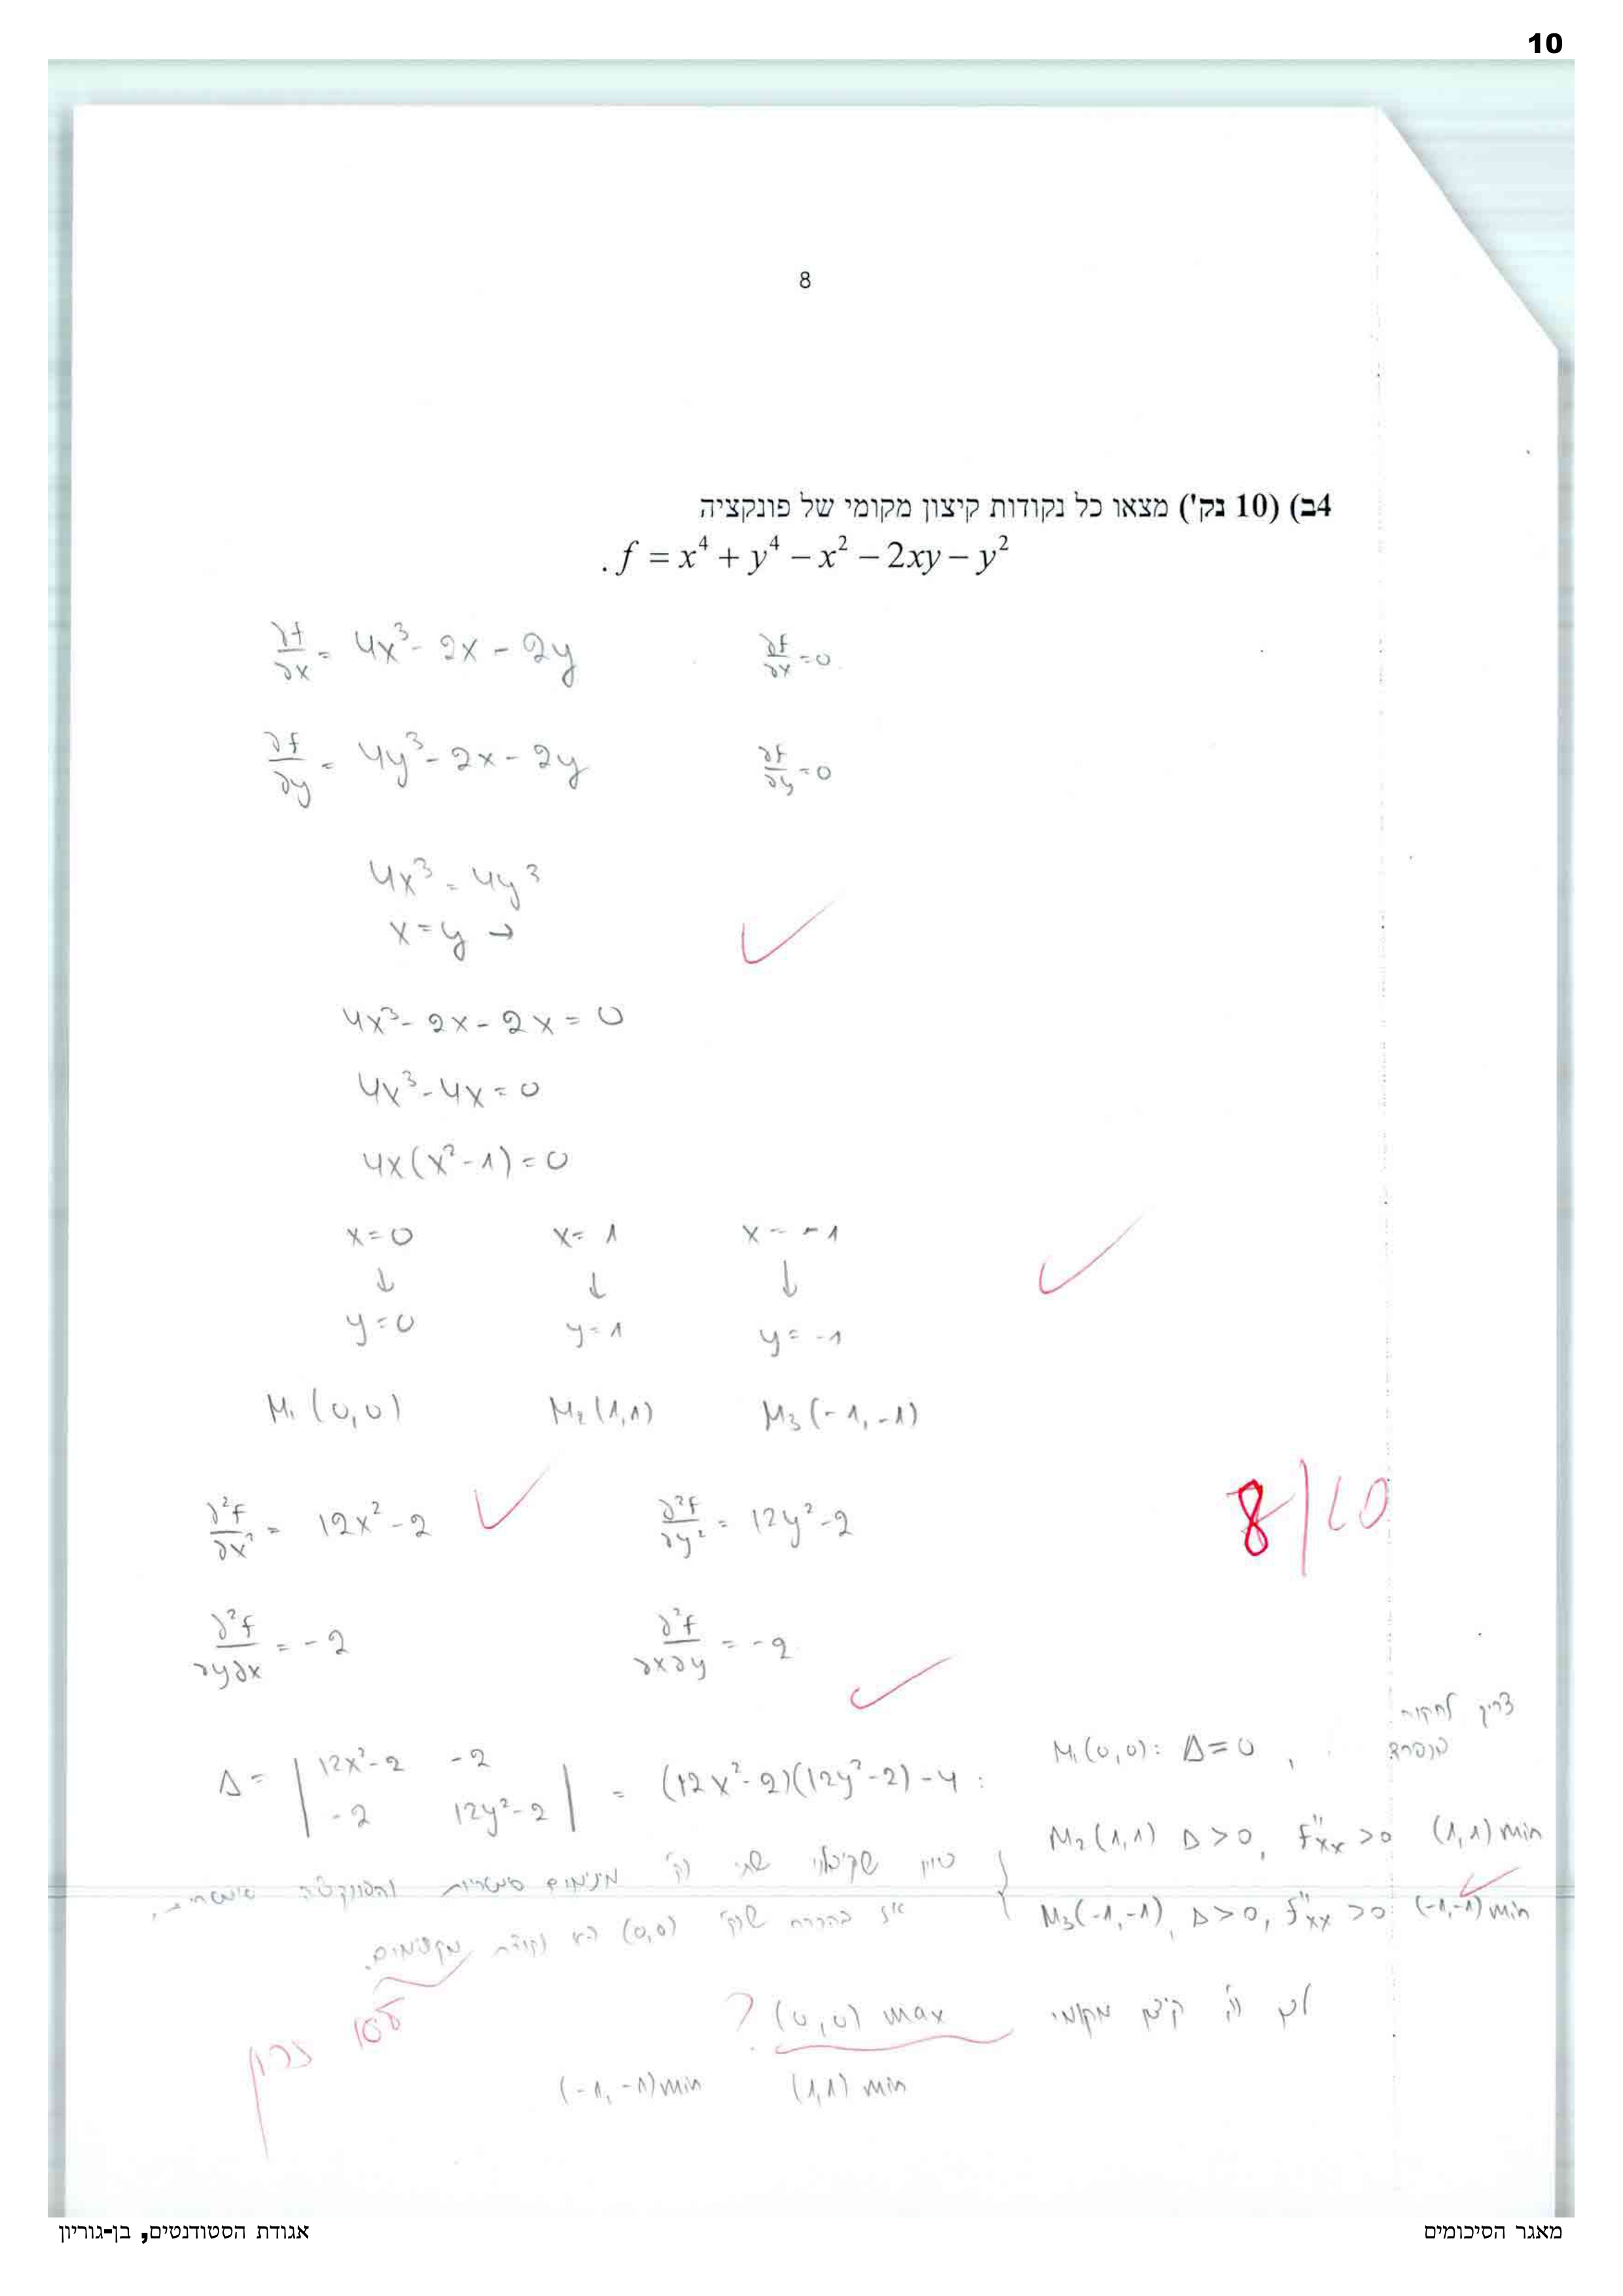 10
8
4ב) (10 נק') מצאו כל נקודות קיצון מקומי של פונקציה
. f = x⁴ + y⁴ − x² − 2xy − y²
∂f/∂x = 4x³ - 2x - 2y    ∂f/∂x = 0
∂f/∂y = 4y³ - 2x - 2y    ∂f/∂y = 0
4x³ = 4y³
x = y →
4x³ - 2x - 2x = 0
4x³ - 4x = 0
4x(x² - 1) = 0
x = 0    x = 1    x = -1
↓    ↓    ↓
y = 0    y = 1    y = -1
M₁ (0,0)    M₂ (1,1)    M₃ (-1,-1)
8/10
∂²f/∂x² = 12x² - 2    ∂²f/∂y² = 12y² - 2
∂²f/∂y∂x = -2    ∂²f/∂x∂y = -2
Δ = | 12x²-2  -2 ; -2  12y²-2 | = (12x²-2)(12y²-2) - 4 :
M₁(0,0): Δ = 0 , צריך לחקור
בנפרד
M₂(1,1) Δ > 0, f''xx > 0 (1,1) min
M₃(-1,-1), Δ > 0, f''xx > 0 (-1,-1) min
כיוון שקיבלנו שתי נק' מינימום סימטריות והפונקציה סימטרית,
אז בהכרח שנק' (0,0) היא נקודת מקסימום.
לכן נק' קיצון מקומי (0,0) max ?
(1,1) min    (-1,-1) min
מאגר הסיכומים
אגודת הסטודנטים, בן-גוריון